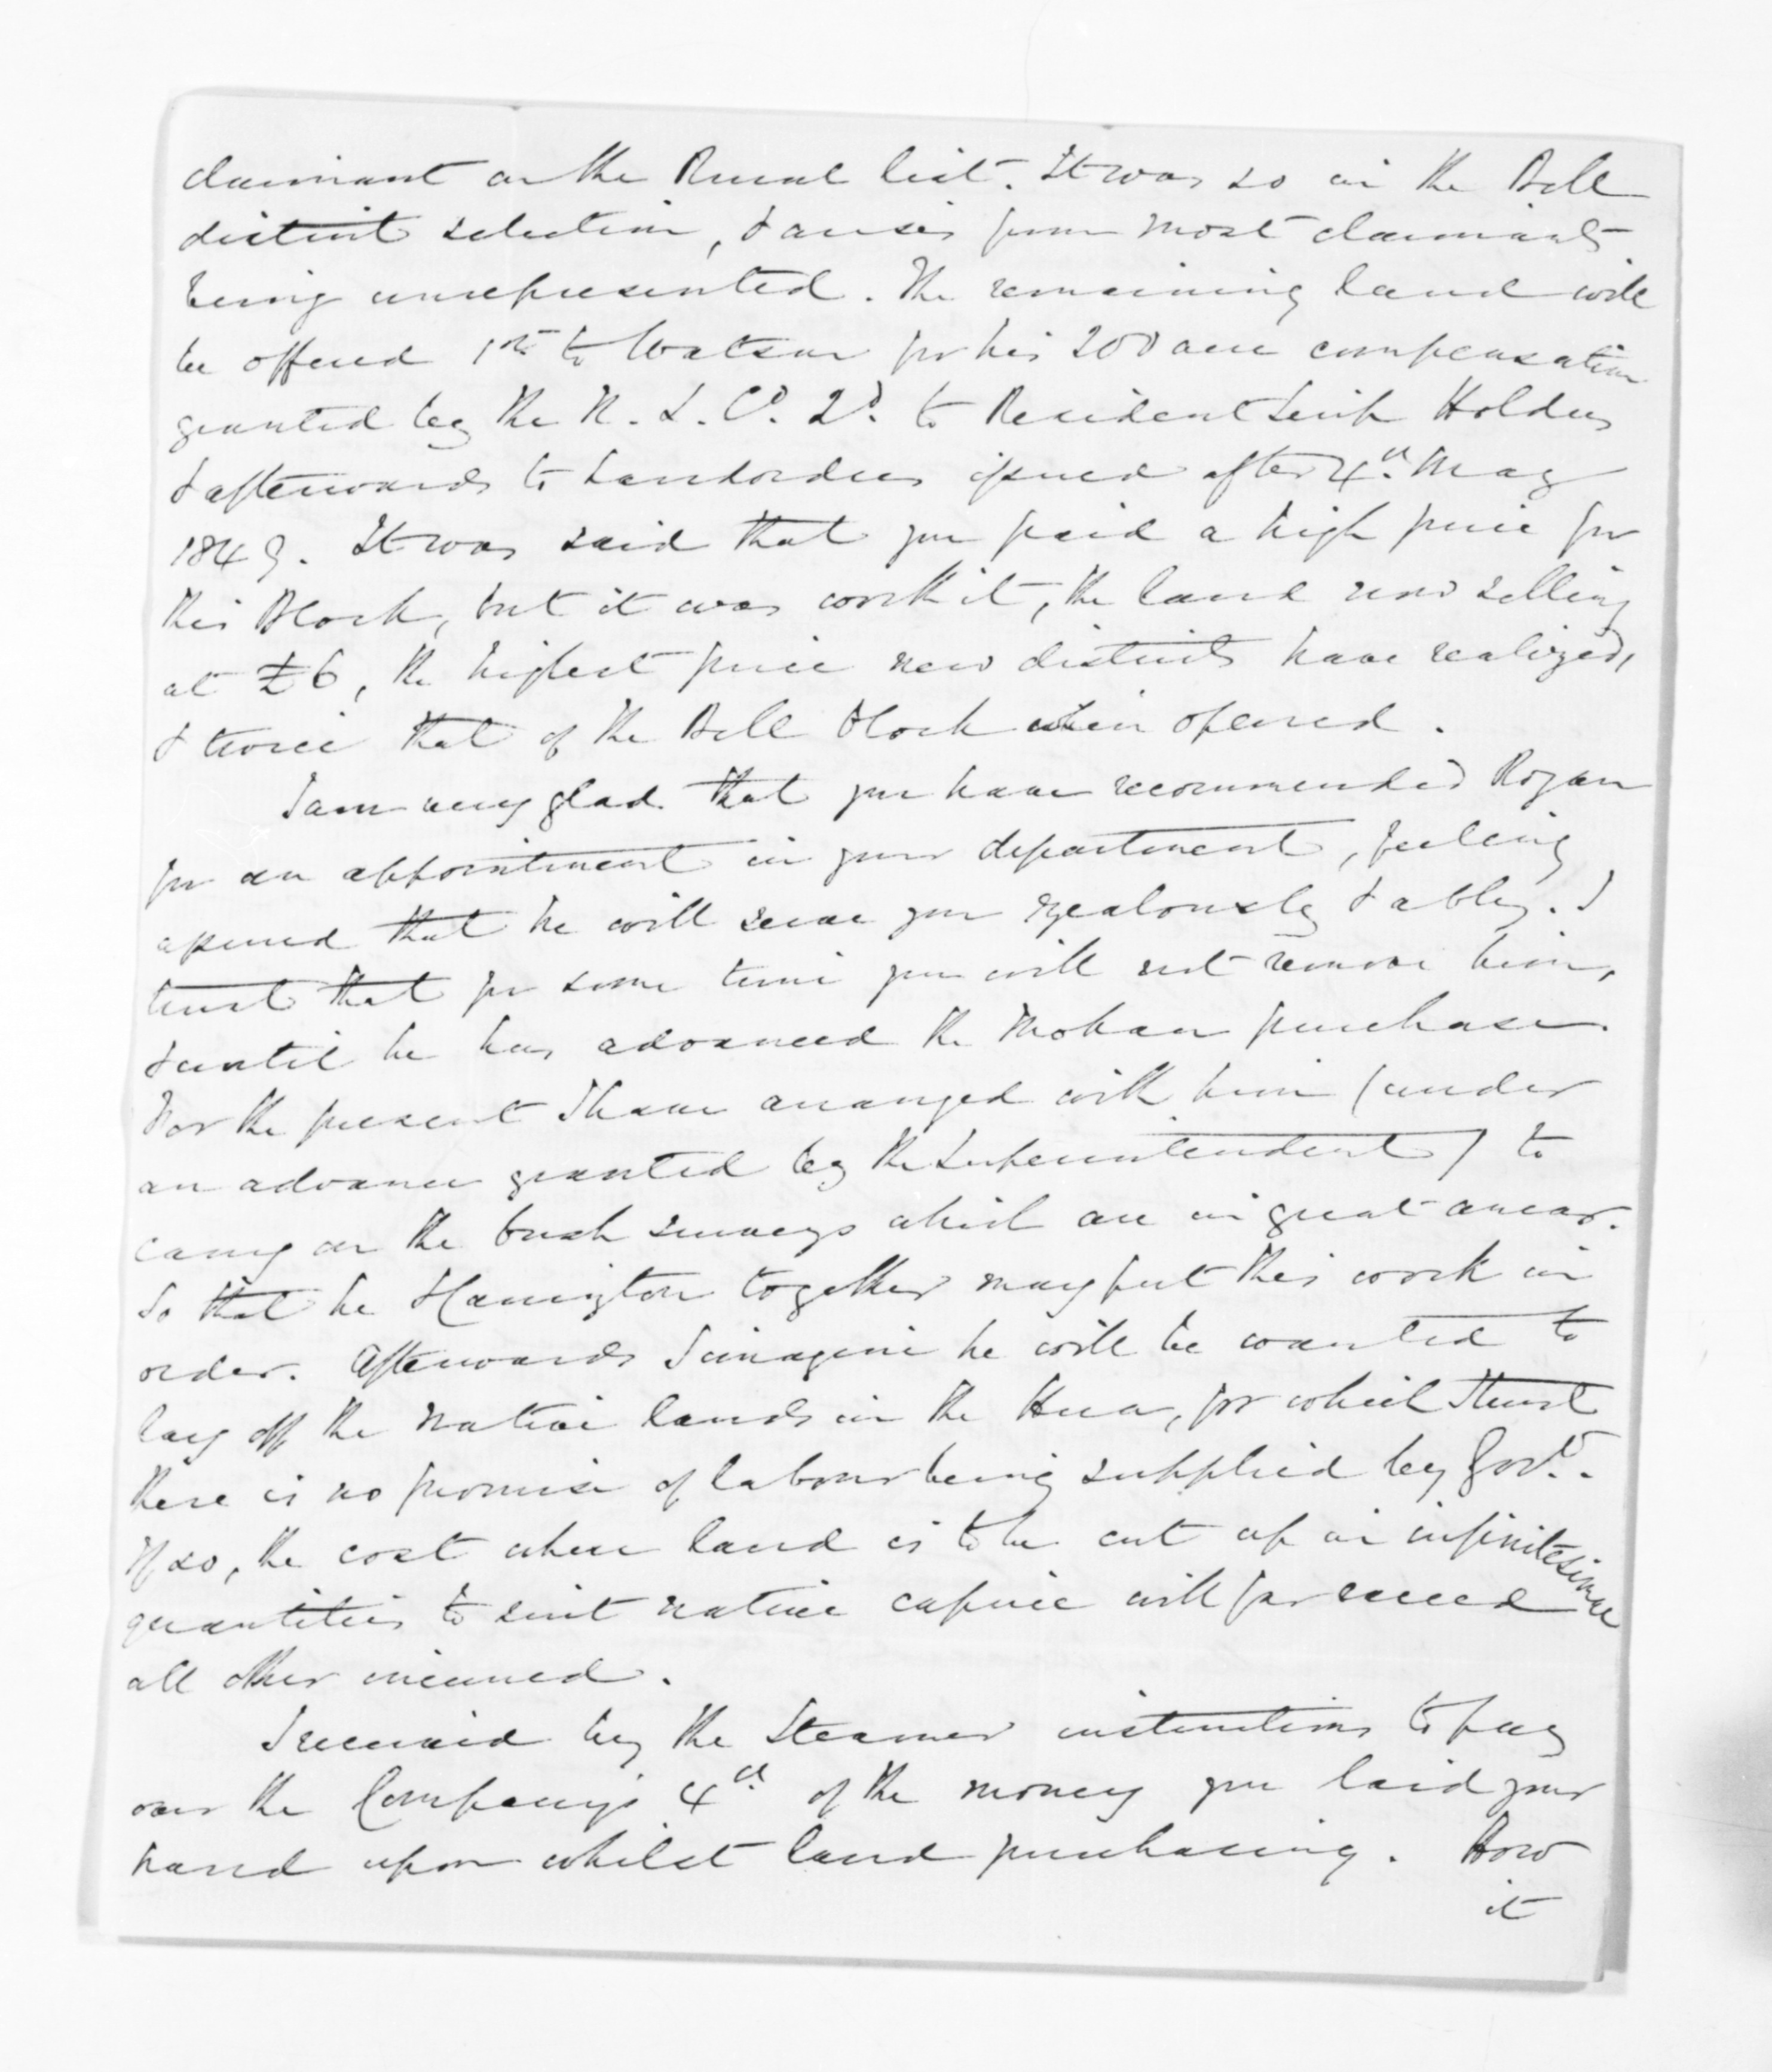 claimant on the Rural list. It was so in the Bell
district selection, & arises from most claimants
being unrepresented. The remaining land will
be offered 1st to Watson for his 200 acre compensation
granted by the N. Z. Co. 2d. to Resident Scrip Holders
& afterwards to Landorders issued after 4th May
1849. It was said that you paid a high price for
this Block, but it was worth it, the land now selling
at £6, the highest price new districts have realized,
& twice that of the Bell block when opened.
I am very glad that you have recommended Rogan
for an appointment in your department, feeling
assured that he will serve you zealously & ably. I
trust that for some time you will not remove him,
& until he has advanced the Mokau purchase.
For the present I have arranged with him (under
an advance granted by the Superintendent) to
carry on the bush surveys which are in great arrear.
So that he & Harrington together may put this work in
order. Afterwards I imagine he will be wanted to
lay off the native lands in the Hua, for which I trust
there is no promise of labour being supplied by Govt.
If so, the cost where land is to be cut up in infinitesimal
quantities to suit native caprice will far exceed
all other incurred.
I received by the Steamer instructions to pay
over the Company's 4th of the money you laid your
hand upon whilst land purchasing. How
it